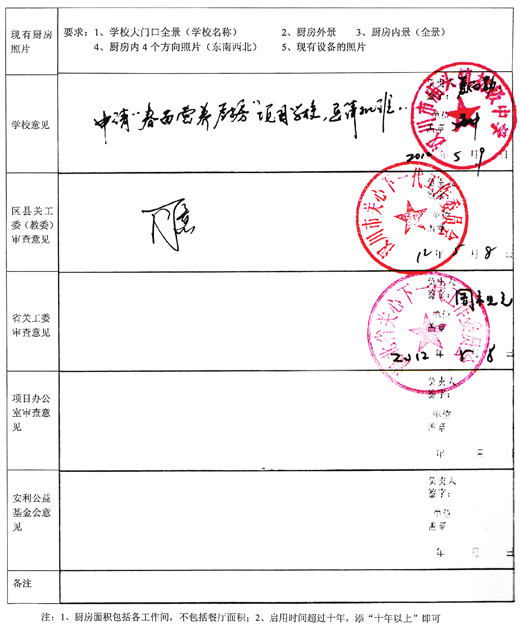 现有厨房
照片
要求：1、学校大门口全景（学校名称） 2、厨房外景 3、厨房内景（全景）
4、厨房内4个方向照片（东南西北） 5、现有设备的照片
学校意见
申请“春苗营养厨房”项目学校，
单位
盖章
5月9
区县关工
委（教委）
审查意见
同意
汉川市关心下一代工作委员会
单位
盖章
12年5月8日
省关工委
审查意见
负责人
签字：
单位
盖章
2012年5.8
项目办公
室审查意
见
负责人
签字：
单位
盖章
年 月
安利公益
基金会意
见
负责人
签字：
单位
盖章
年 月 日
备注
注：1、厨房面积包括各工作间，不包括餐厅面积；2、启用时间超过十年，添“十年以上”即可